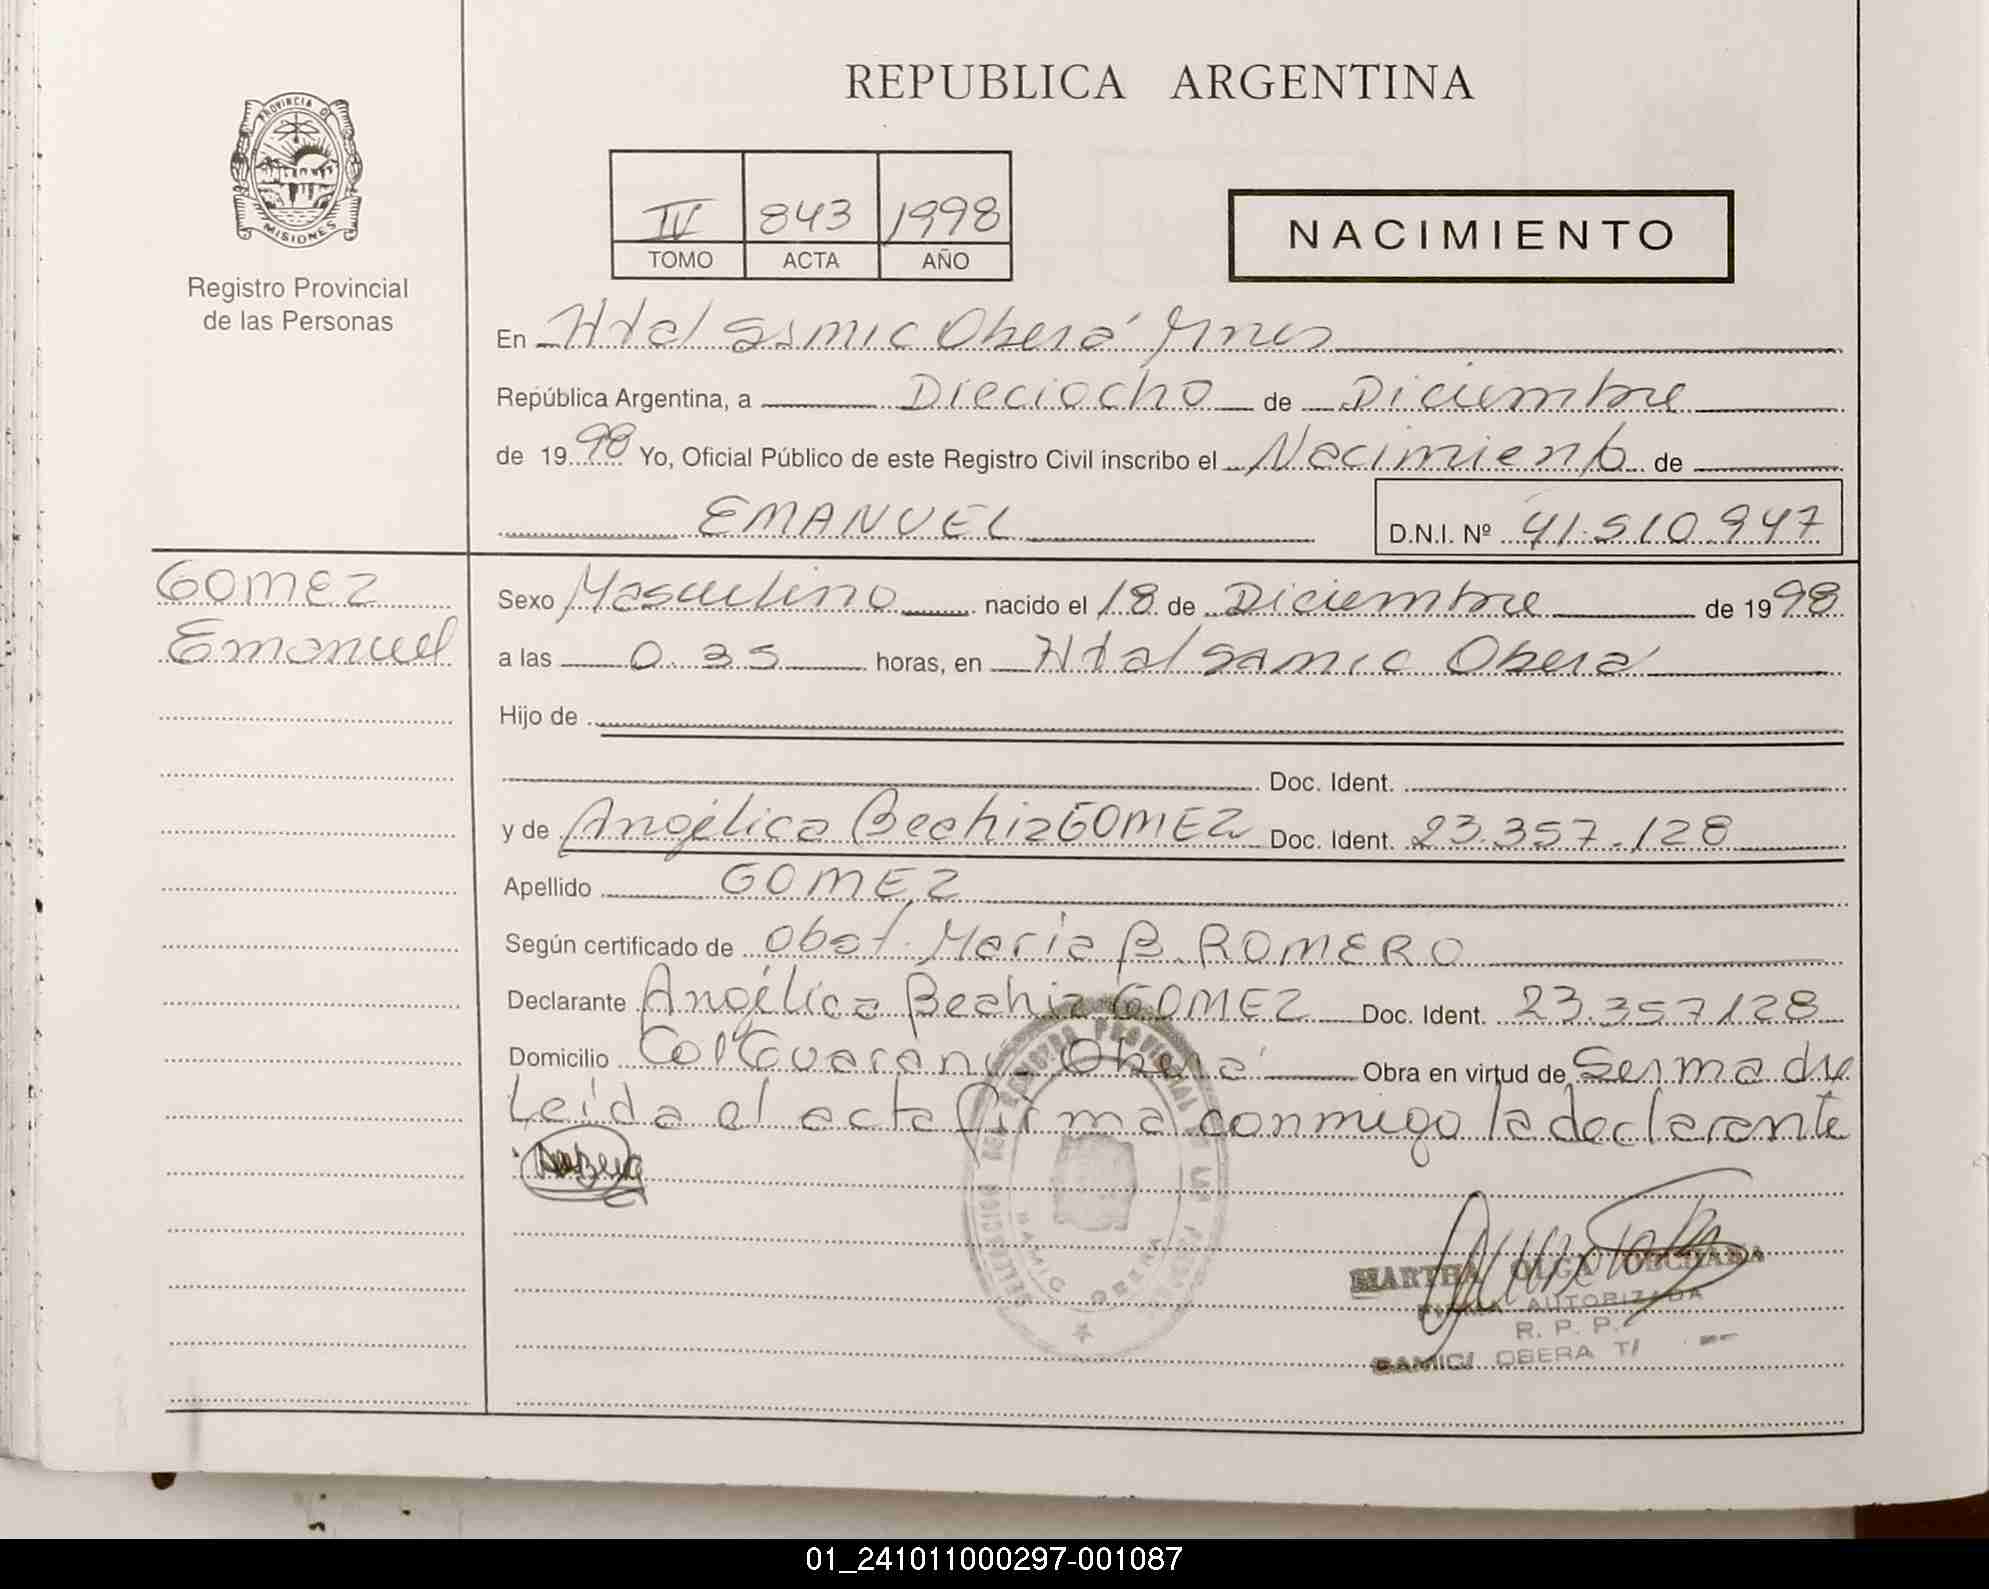 REPUBLICA ARGENTINA
PROVINCIA DE MISIONES
Registro Provincial
de las Personas
IV 843 1998
TOMO ACTA AÑO
NACIMIENTO
En Htal Samic Oberá Mnes
República Argentina, a Dieciocho de Diciembre
de 1998 Yo, Oficial Público de este Registro Civil inscribo el Nacimiento de
EMANUEL D.N.I. Nº 41.510.947
GOMEZ
Emanuel
Sexo Masculino nacido el 18 de Diciembre de 1998
a las 0.35 horas, en Htal Samic Oberá
Hijo de
Doc. Ident.
y de Angélica Beatriz GOMEZ Doc. Ident. 23.357.128
Apellido GOMEZ
Según certificado de Obst. María B. ROMERO
Declarante Angélica Beatriz GOMEZ Doc. Ident. 23.357128
Domicilio Col Guarany Oberá Obra en virtud de Ser madre
Leída el acta firma conmigo la declarante
MARTHA OLGA
FIRMA AUTORIZADA
R. P. P.
SAMIC OBERA
REGISTRO PROVINCIAL DE LAS PERSONAS
SAMIC OBERA
01_241011000297-001087